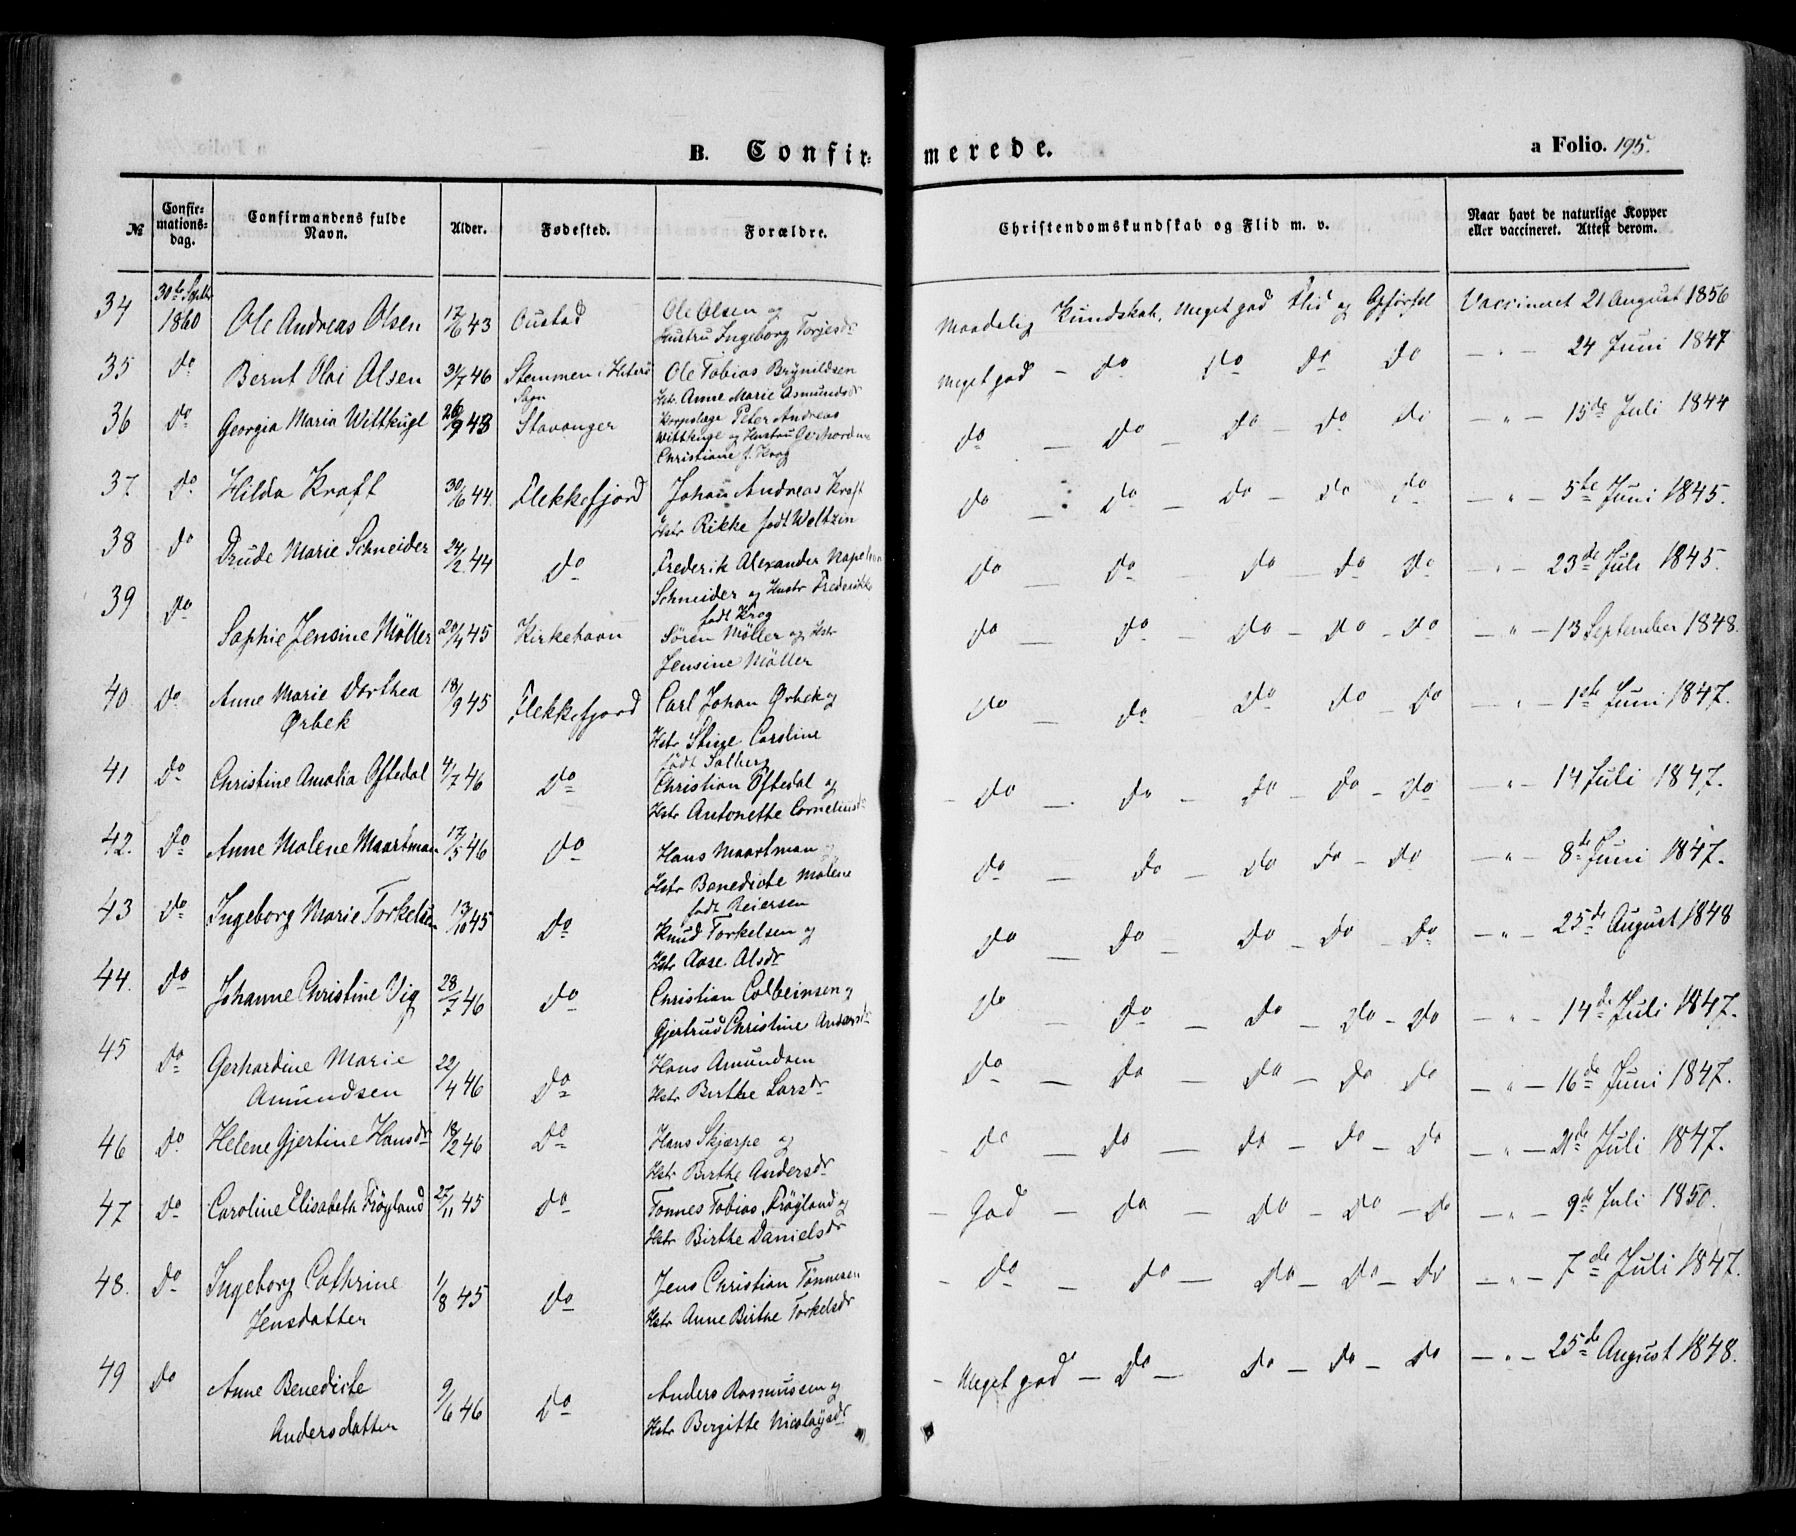 B. Confir- merede. a Folio. 195.
№ Confir-mations-dag. Confirmandens fulde Navn. Alder. Fødested. Forældre. Christendomskundskab og Flid m. v. Naar havt de naturlige Kopper eller vaccineret. Attest derom.
34 30te Septbr 1860 Ole Andreas Olsen 17/6 43 Oustad Ole Olsen og
Hustru Ingeborg Torjesdr Maadelig Kundskab, Meget god Flid og Opførsel Vaccineret 21 August 1856
35 Do Bernt Olai Olsen 31/7 46 Stemmen i Hiterø Sogn Ole Tobias Brynildsen
Hstr. Anne Marie Asmundsdr Meget god - do do do do - " - 24 Juni 1847
36 Do Georgia Maria Wittkugl 26/9 43 Stavanger Korpslæge Peter Andreas
Wittkugl og Hustru Gerhardine
Christiane f. Krog do - do - do - do do - " - 15de Juli 1844
37 Do Hilda Kraft 30/6 44. Flekkefjord Johan Andreas Kraft
Hstr Rikke født Weltzin do - do - do - do do - " - 5te Juni 1845.
38 do Drude Marie Schneider 24/2 44 do Frederik Alexander Napoleon
Schneider og Hustr Frederikke
født Krog do - do - do - do - do - " - 23de Juli 1845.
39 do Sophie Jensine Möller 20/4 45 Kirkehavn Søren Möller og Hstr
Jensine Möller do - do - do - do - do - " - 13 September 1848.
40 do Anne Marie Dorthea
Ørbek 18/9 45 Flekkefjord Carl Johan Ørbek og
Hstr Stine Caroline
født Salberg do - do - do do do - " - 1ste Juni 1847.
41 Do Christine Amalia Oftedal 4/7 46 Do Christian Oftedal og
Hstr Antonette Corneliusdr - do - do - do - do - do - " - 14 Juli 1847.
42. Do Anne Malene Maartman 17/5 46 do Hans Maartman og
Hstr Benedicte Malene
født Reiersen do - do - do do - do - " - 8de Juni 1847.
43 Do Ingeborg Marie Torkelsen 13/10 45 Do Knud Torkelsen og
Hstr Aase Alsdr do - do - do - do - do - " - 25de August 1848
44. Do Johanne Christine Vig 28/7 46 do Christian Colbeinsen og
Gjertrud Christine Andersdr do - do - do - do - do - " - 14de Juli 1847.
45 Do Gerhardine Marie
Amundsen 22/4 46 Do Hans Amundsen
Hstr Birthe Larsdr do - do - do - do do - " - 16de Juni 1847.
46 Do. Helene Gjertine Hansdr 18/2 46 Do Hans Skjærpe og
Hstr Birthe Andersdr - do - do - do - do - do - " - 21de Juli 1847.
47 Do Caroline Elisabeth Frøyland 27/11 45 Do Tonnes Tobias Frøyland og
Hstr Birthe Danielsdr - God - do - do - do - do - " - 9de Juli 1850.
48. Do Ingeborg Cathrine
Jensdatter 1/8 45 do Jens Christian Tønnesen
Hstr Anne Birthe Torkelsdr - do - do - do - do - do - " - 7de Juli 1847.
49 Do Anne Benedicte
Andersdatter 9/6 46 Do Anders Rasmussen og
Hstr Birgitte Nicolaysdr - Meget god - Do - do - do - do - " - 25de August 1848.